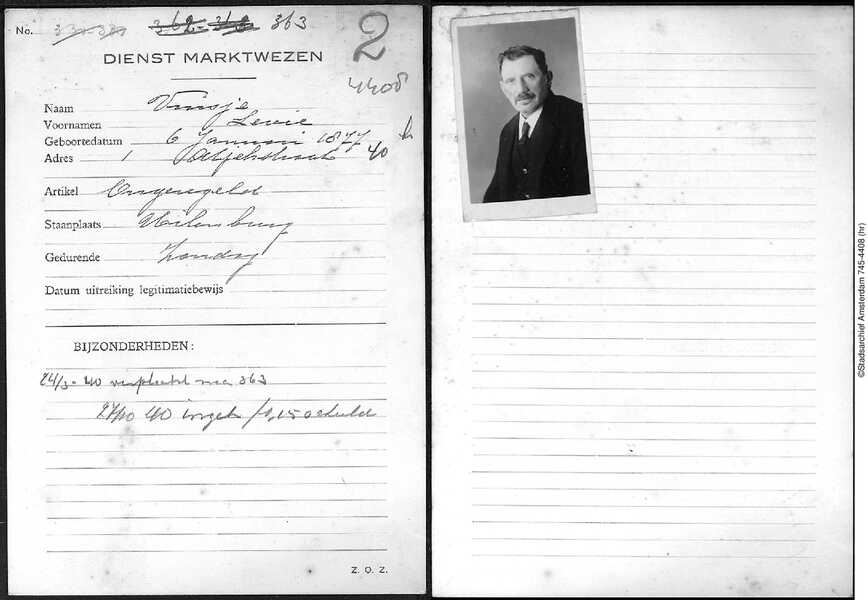 No. 363
2
DIENST MARKTWEZEN
4408
Naam
Voornamen Levie
Geboortedatum 6 Januari 1877
Adres 1 Atjehstraat 40
Artikel Ongeregeld
Staanplaats Uilenburg
Gedurende Zondag
Datum uitreiking legitimatiebewijs
BIJZONDERHEDEN:
24/3-40 verplaatst naar 363
27/10 40 schuld
Z. O. Z.
©Stadsarchief Amsterdam 745-4408 (hr)